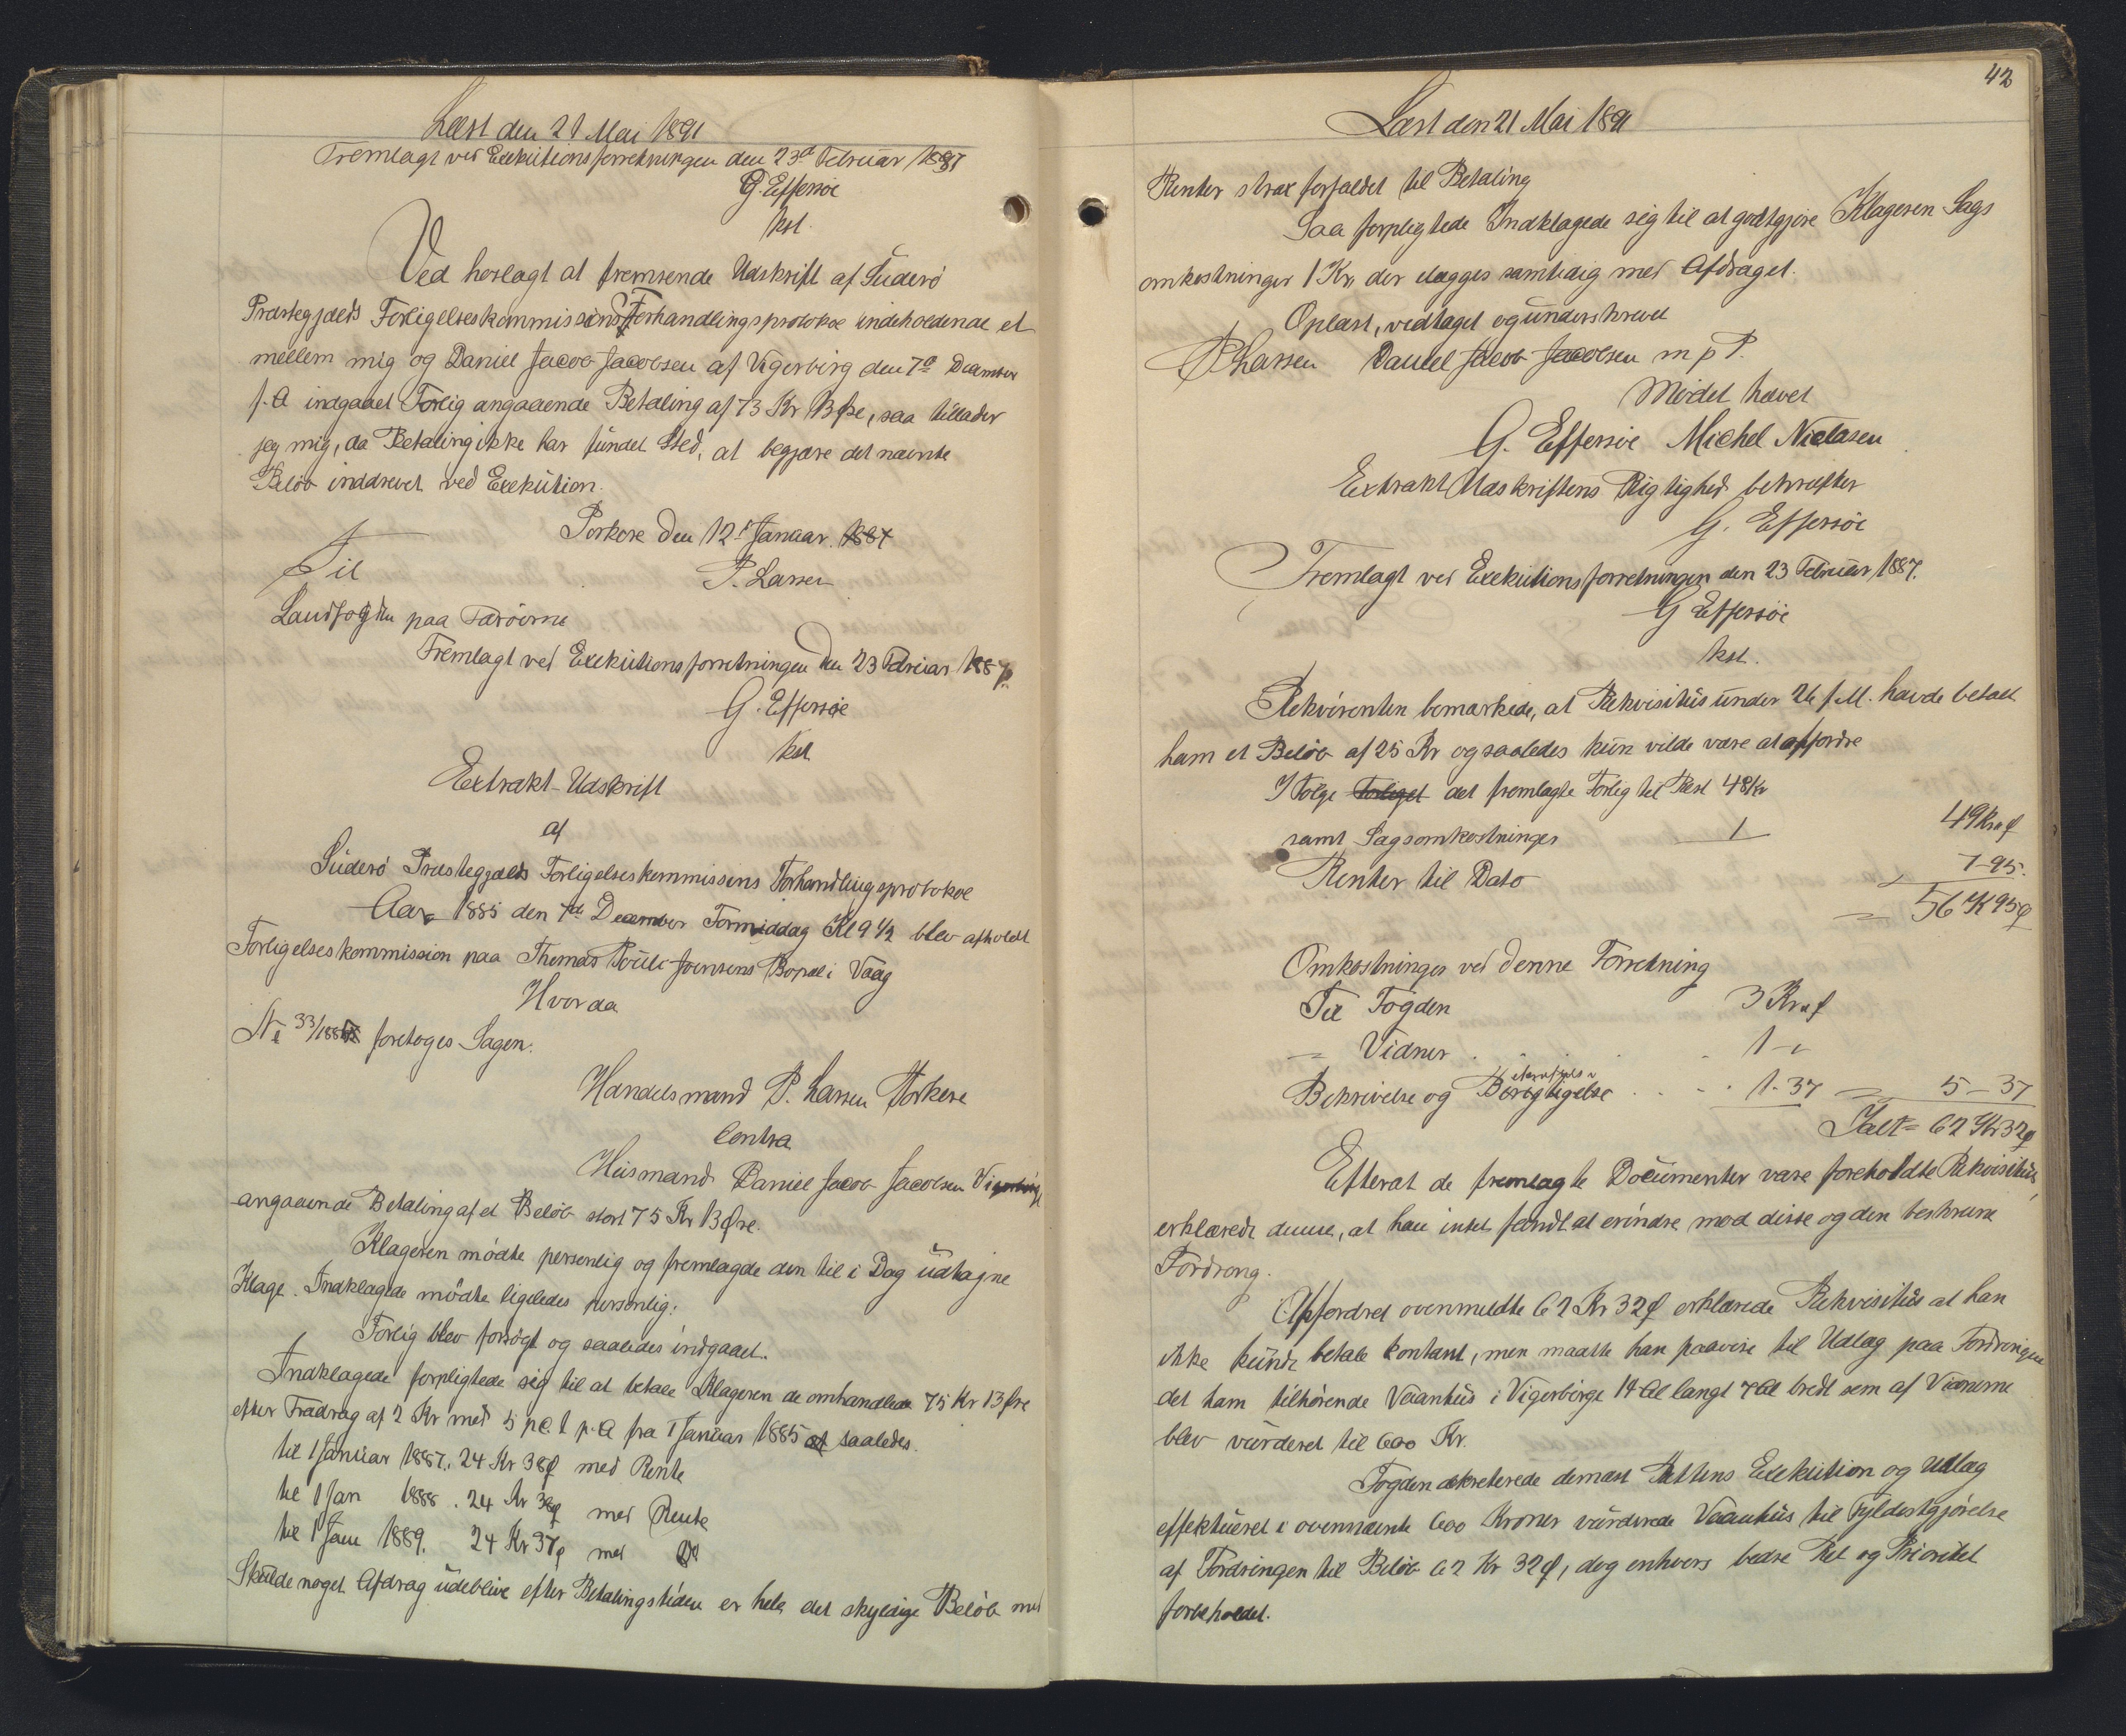 Læst den 21 Mai 1891
Fremlagt ved Exekutionsforretningen den 23d Februar 1887
G. Effersøe
kst.
Ved herlagt at fremsende Udskrift af Suderø
Præstegjælds Forligelseskommissions Forhandlingsprotokol indeholdende et
mellem mig og Daniel Jacob Jacobsen af Vigerbirg den 7d December
f. A indgaaet Forlig angaaende Betaling af 73 Kr 13 Øre, saa tillader
jeg mig, da Betaling ikke har fundet Sted, at begjære det nævnte
Beløb inddrevet ved Exekution.
Porkere den 12te Januar. 1887
Til P. Larsen
Landfogden paa Færøerne
Fremlagt ved Exekutionsforretningen den 23 Februar 1887.
G. Effersøe
kst
Extrakt-Udskrift
af
Suderø Præstegjælds Forligelseskommissions Forhandlingsprotokol
Aar 1885 den 7de December Formiddag Kl 9 1/2 blev afholdt
Forligelseskommission paa Thomas Poul Joensens Bopæl i Vaag
Hvor da
No 33/188 foretoges Sagen:
Handelsmand P. Larsen Porkere
Contra
Huusmand Daniel Jacob Jacobsen Vigerbirge
angaaende Betaling af et Beløb stort 75 Kr 13 Øre.
Klageren mødte personlig og fremlagde den til i Dag udtagne
Klage. Indklagede mødte ligeledes personlig.
Forlig blev forsøgt og saaledes indgaaet.
Indklagede forpligtede sig til at betale Klageren de omhandlede 75 Kr 13 Øre
efter Fradrag af 2 Kr med 5 pC.t p.A fra 1 Januar 1885 saaledes.
til 1 Januar 1887. 24 Kr 38 Ø med Rente
til 1 Jan 1888. 24 Kr 38 Ø med Rente
til 1 Janu 1889. 24 Kr 37 Ø med Do
Skulde noget Afdrag udeblive efter Betalingstiden er hele det skyldige Beløb med
42
Læst den 21 Mai 1891
Renter strax forfaldet til Betaling
Saa forpligtede Indklagede sig til at godtgjøre Klageren Sags
omkostninger 1 Kr, der elægges samtidig med Afdraget.
Oplæst, vedtaget og underskrevet
P Larsen Daniel Jacob Jacobsen m p P.
Mødet hævet
G. Effersøe Michel Nielasen
Extrakt Udskriftens Rigtighed bekræfter
G. Effersøe
Fremlagt ved Exekutionsforretningen den 23 Februar 1887.
G Effersøe
kst.
Rekvirenten bemærkede, at Rekvisitus under 26 f.M. havde betalt
ham et Beløb af 25 Kr og saaledes kun vilde være at affordre
I Følge Forliget det fremlagte Forlig til Rest 48 Kr
samt Sagsomkostninger 1 49 Kr " Ø
Renter til Dato 7-95.
= 56 K 95 Ø
Omkostninger ved denne Forretning
Til Fogden 3 Kr " Ø
= Vidner 1 - "
Bekrivelse og Berigtigelse 1-37 = 5-37
Ialt = 62 Kr 32 Ø
Efterat de fremlagte Documenter vare foreholdte Rekvisitus,
erklærede denne, at han intet fandt at erindre mod disse og den beskrevne
Fordrong.
Affordret ovenmeldte 62 Kr 32 Ø erklærede Rekvisitus at han
ikke kunde betale kontant, men maatte han paavise til Udlæg paa Fordringen
det ham tilhørende Vaanhus i Vigerbirge 14 Al langt 7 Al bredt som af Vidnerne
blev vurderet til 600 Kr.
Fogden dekreterede dernæst Rettens Exekution og Udlæg
effektueret i ovennævnte 600 Kroner vurderede Vaanhus til Fyldestgjørelse
af Fordringen til Beløb 62 Kr 32 Ø, dog enhvers bedre Ret og Prioritet
forbeholdet.